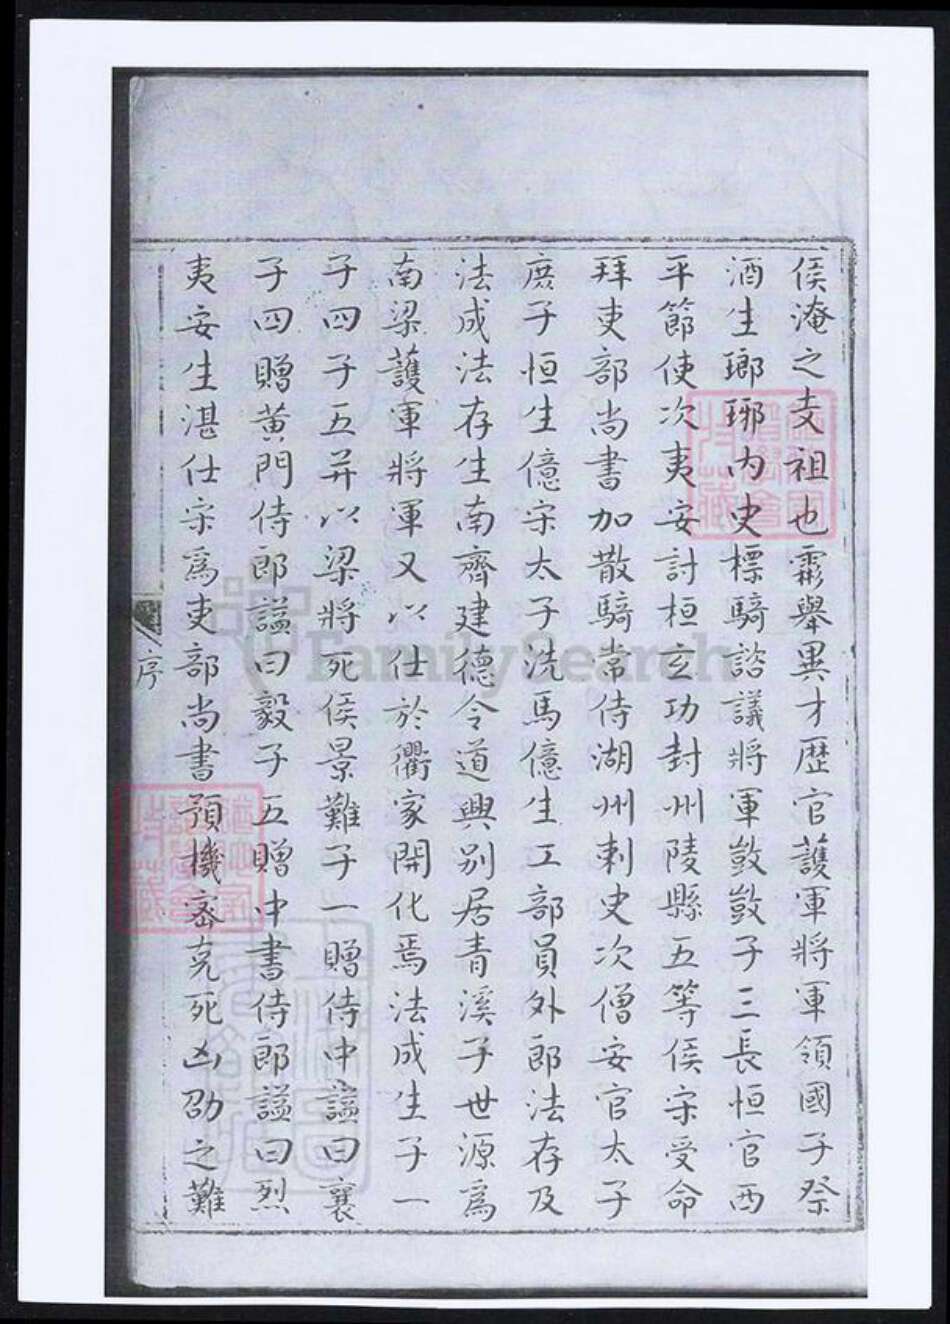 侯淹之支祖也霦舉異才歷官護軍將軍領國子祭
酒生瑯琊內史標騎諮議將軍敳敳子三長恒官西
平節使次夷安討桓玄功封州陵縣五等侯宋受命
拜吏部尚書加散騎常侍湖州刺史次僧安官太子
庶子恒生億宋太子洗馬億生工部員外郎法存及
法成法存生南齊建德令道興別居青溪子世源為
南梁護軍將軍又以仕於衢家開化焉法成生子一
子四子五并以梁將死侯景難子一贈侍中諡曰襄
子四贈黃門侍郎諡曰毅子五贈中書侍郎諡曰烈
夷安生湛仕宋為吏部尚書預機密克死凶劭之難
序
FamilySearch